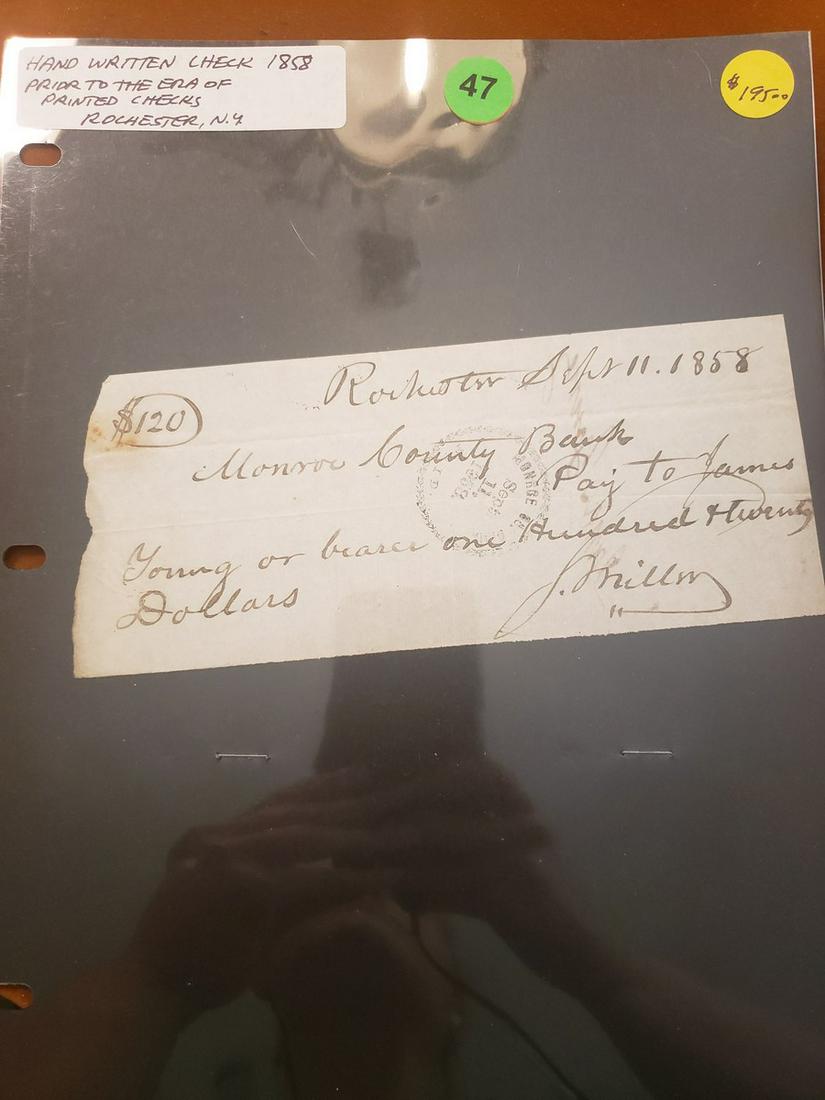 HAND WRITTEN CHECK 1858
PRIOR TO THE ERA OF
PRINTED CHECKS
ROCHESTER, N.Y.
47
$195.00
Rochester Sept 11. 1858
$120
Monroe County Bank
Pay to James
Young or bearer one Hundred & twenty
Dollars
J. Miller
MONROE
Sept
11